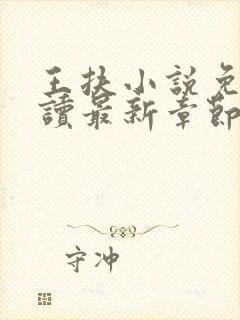 王扶小說免
讀最新章節
守冲